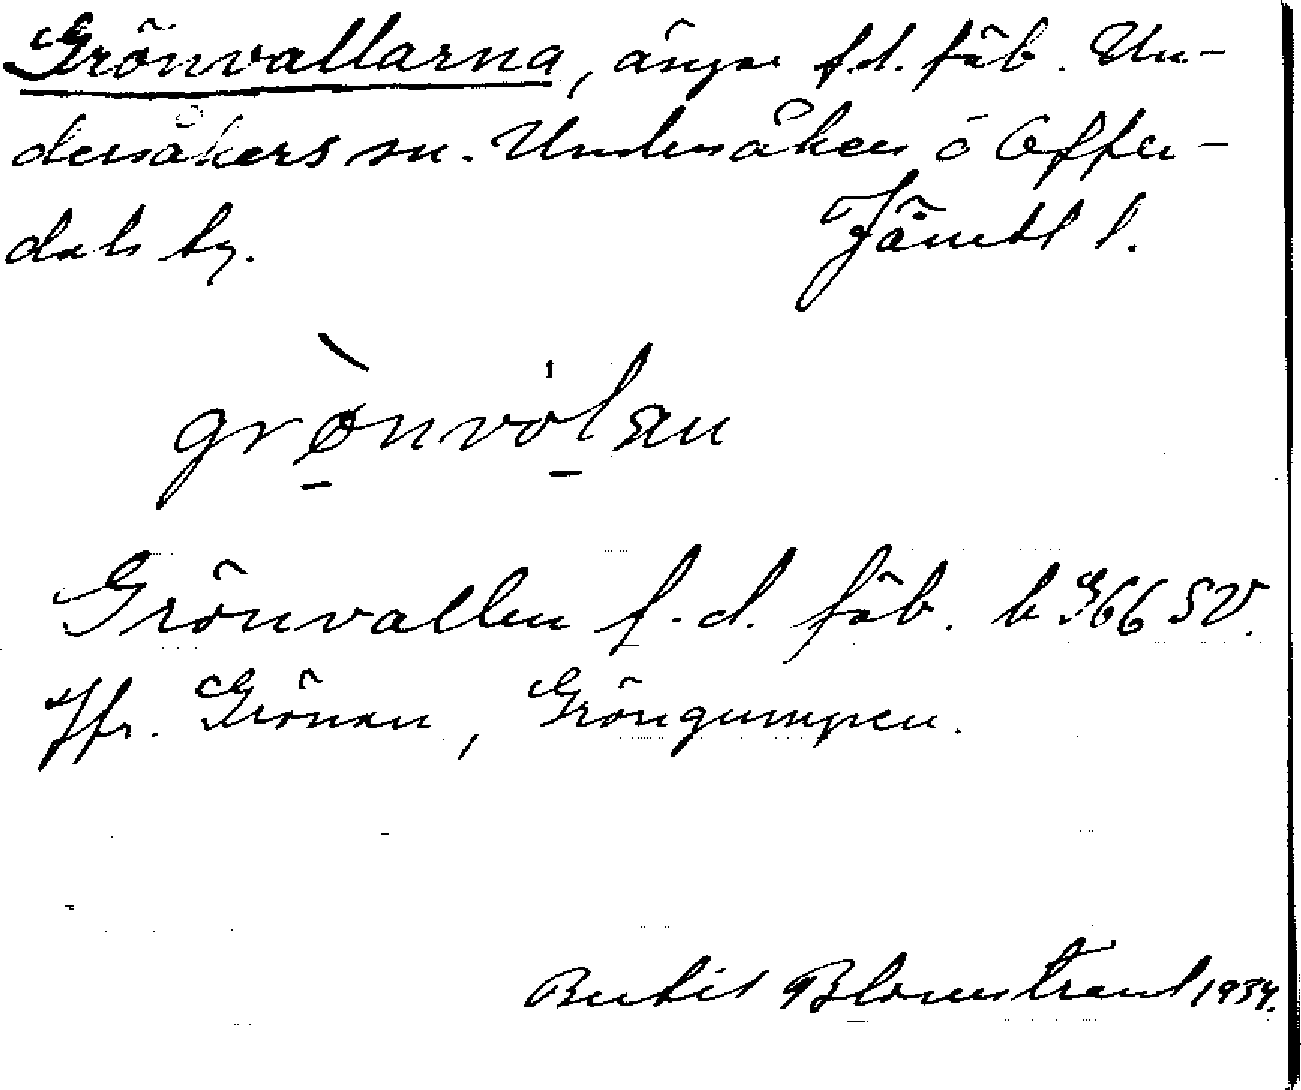 Grönvallarna, ängar f.d. fäb. Un-
dersåkers sn. Undersåker ö Offer-
dals by. Jämtl l.
grønvolan
Grönvallen f.d. fäb. b 366 SV.
Jfr. Grönan, Gröngumpen.
Bertil Blomstrand 1934.